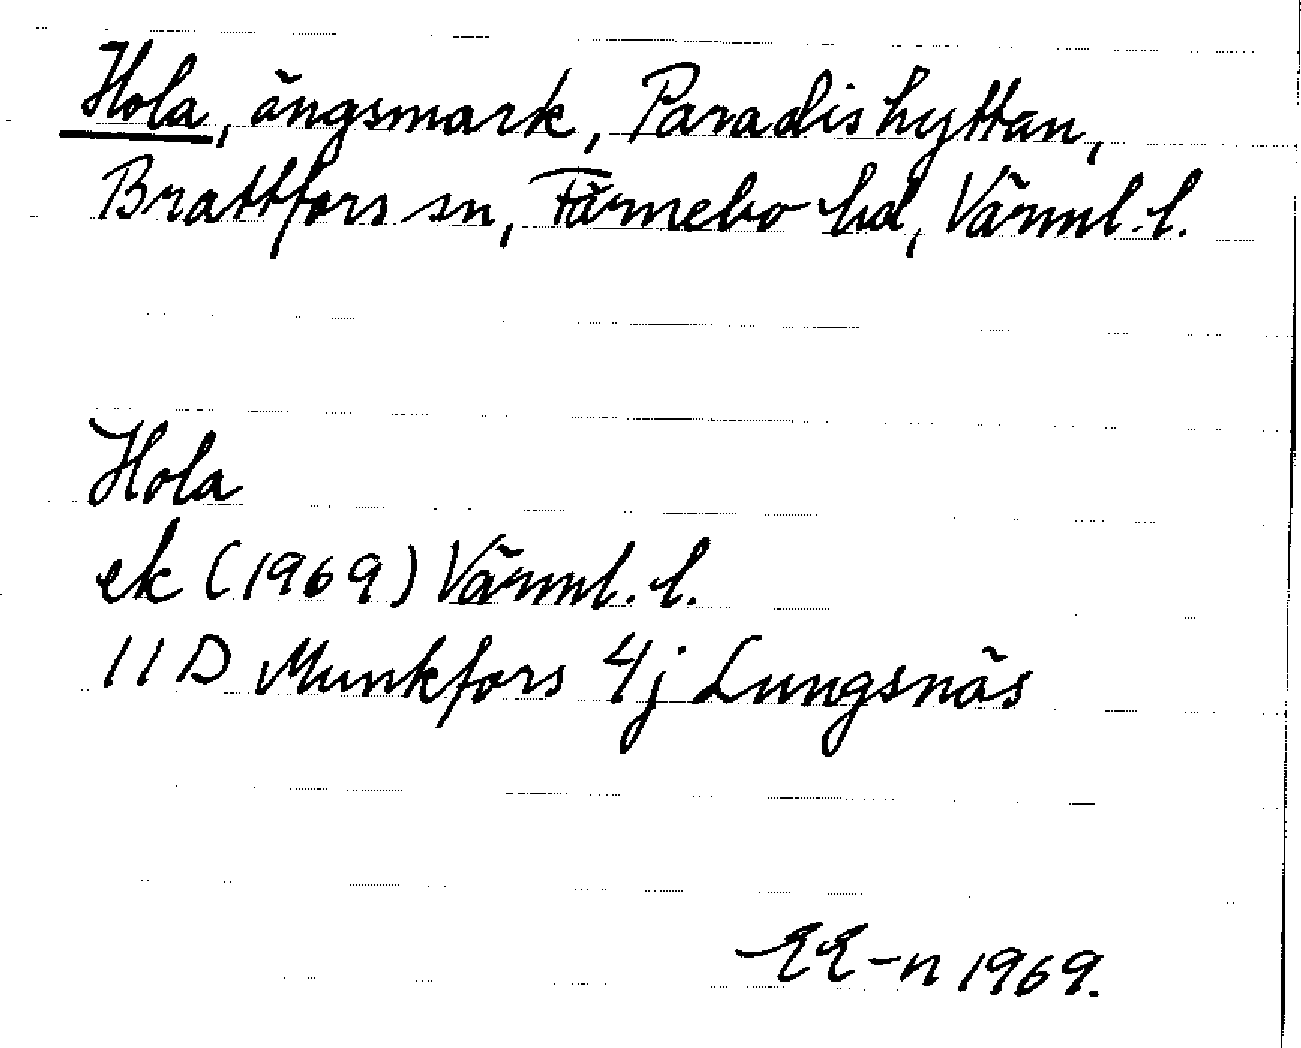 Hola, ängsmark, Paradishyttan,
Brattfors sn, Färnebo hd, Värml. l.
Hola
ek (1969) Värml. l.
11 D Munkfors 4j Lungsnäs
EE-n 1969.